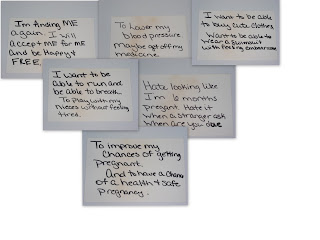 I'm finding ME
again. I will
accept ME for me
and be happy &
FREE.
To lower my
blood pressure
maybe get off my
medicine.
I want to be able
to buy cute clothes
Want to be able to
wear a swimsuit
with feeling embarrassed
I want to be
able to run and
be able to breath.
To play with my
nieces without feeling
tired.
Hate looking like
I'm 6 months
pregnant. Hate it
when a stranger ask
when are you due
To improve my
chances of getting
pregnant.
And to have a chance
of a health & safe
pregnancy.